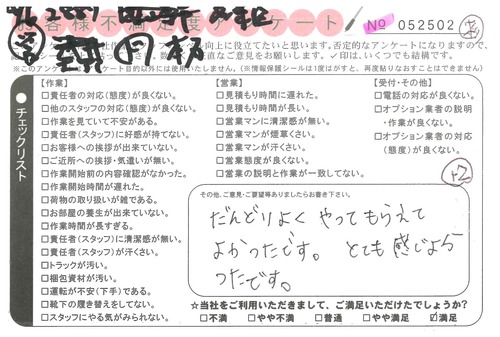 お客様不満足度アンケート
No 052502
向上に役立てたいと思います。否定的なアンケートになりますので、
直なご意見をお願いします。✓印は、いくつでも結構です。
※このアンケート
目的以外には使用いたしません。(※情報保護シールは1度はがすと、再度貼りなおすことはできません)
チェックリスト
【作業】
□責任者の対応(態度)が良くない。
□他のスタッフの対応(態度)が良くない。
□作業を見ていて不安がある。
□責任者(スタッフ)に好感が持てない。
□お客様への挨拶が出来ていない。
□ご近所への挨拶・気遣いが無い。
□作業開始前の内容確認がなかった。
□作業開始時間が遅れた。
□荷物の取り扱いが雑である。
□お部屋の養生が出来ていない。
□作業時間が長すぎる。
□責任者(スタッフ)に清潔感が無い。
□責任者(スタッフ)が汗くさい。
□トラックが汚い。
□梱包資材が汚い。
□運転が不安(下手)である。
□靴下の履き替えをしてない。
□スタッフにやる気がみられない。
【営業】
□見積もり時間に遅れた。
□見積もり時間が長い。
□営業マンに清潔感が無い。
□営業マンが煙草くさい。
□営業マンが汗くさい。
□営業態度が良くない。
□営業の説明と作業が一致してない。
【受付・その他】
□電話の対応が良くない。
□オプション業者の説明
・作業が良くない。
□オプション業者の対応
(態度)が良くない。
+2
その他、ご意見・ご要望等ありましたらお書き下さい。
だんどりよく やってもらえて
よかったです。 とても 感じよか
ったです。
☆当社をご利用いただきまして、ご満足いただけたでしょうか?
□不満 □やや不満 □普通 □やや満足 ☑満足